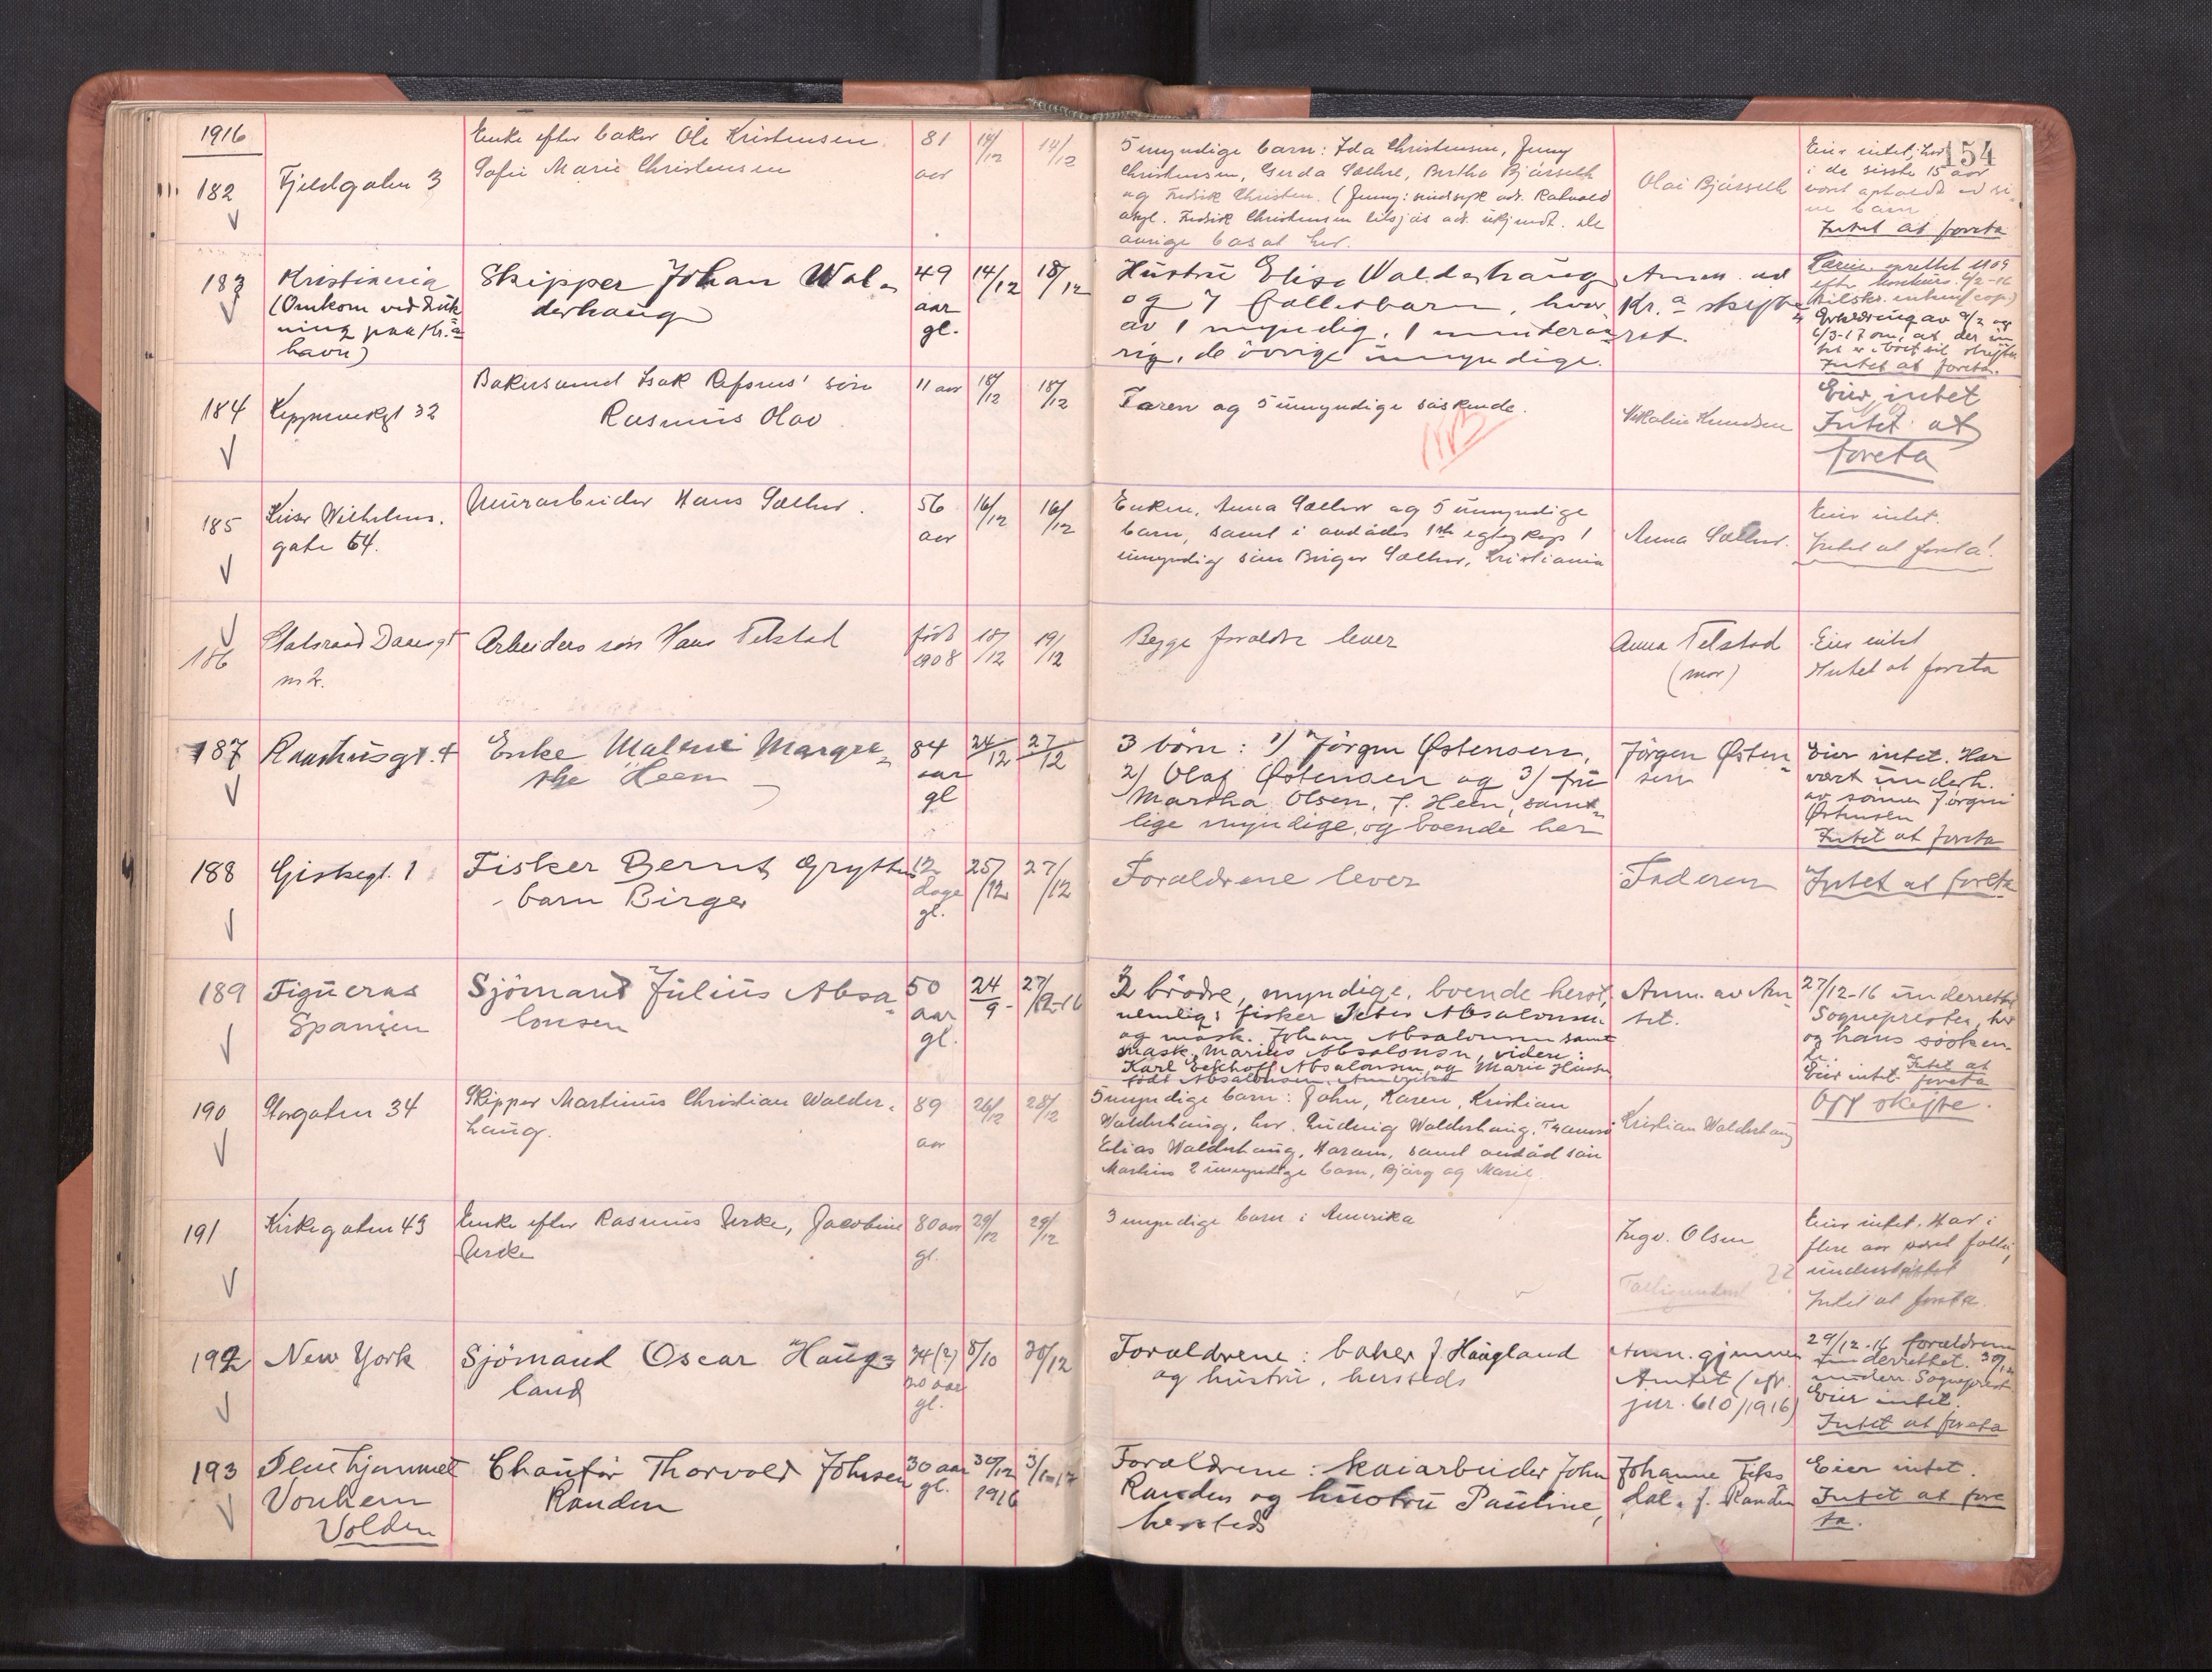 1916
154
182
Fjeldgaten 3
Enke efter baker Ole Kristensen
Sofie Marie Christensen
81
aar
14/12
14/12
5 myndige barn: Ida Christensen, Jenny
Christensen, Gerda Sæther, Bertha Bjørseth
og Fredrik Christen. (Jenny: sindsyk
asyl. Fredrik Christensen tilsjøs ukjendt. De
øvrige bosat her.
Olai Bjørseth
Eier intet, har
i de sisste 15 aar
vært av si-
ne barn
Intet at foreta
183
Kristiania
(Omkom ved druk
ning paa Kr.a
havn)
Skipper Johan Wal-
derhaug
49
aar
gl.
14/12
18/12
Hustru Elise Walderhaug
og 7 fællesbarn, hvor
av 1 myndig, 1 mindreaa
rig, de øvrige umyndige.
Anm. ved
Kr.a skifte
ret.
-16
Erklæring av 9/2 og
6/3-17 om, at der in
tet er i boet til skifte
Intet at foreta.
184
Kippervikgt 32
Bakersvend Isak Refsnes' søn
Rasmus Olav
11 aar
18/12
18/12
Faren og 5 umyndige søskende.
Knudsen
Eier intet
Intet at
foreta
185
Keiser Wilhelms.
gate 64.
Murarbeider Hans Sæther.
56
aar
16/12
16/12
Enken, Anna Sæther og 5 umyndige
barn, samt i avdødes 1ste egteskap 1
umyndig søn Birger Sæther, Kristiania
Anna Sæther.
Eier intet.
Intet at foreta!
186
Statsraad Daaesgt
nr 2.
Arbeiders søn Hans Telstad
født
1908
18/12
19/12
Begge forældre lever
Anna Telstad
(mor)
Eier intet
Intet at foreta
187
Raadhusgt. 4
Enke Malene Margre-
the Heen
84
aar
gl
24/12
27/12
3 børn: 1) Jørgen Østensen,
2) Olaf Østensen og 3) fru
Martha Olsen, f. Heen, samt-
lige myndige, og boende her
Jörgen Østen-
sen
Eier intet. Har
vært underh.
av sönnen Jörgen
Østensen
Intet at foreta
188
Giskegt. 1
Fisker Bernt Gryttens
barn Birger
12
dage
gl.
25/12
27/12
Forældrene lever
Faderen
Intet at foreta
189
Figueras
Spanien
Sjömand Julius Absa-
lonsen
50
aar
gl.
24/9 -
27/12-16
3 brødre, myndige, boende herst,
nemlig: fisker Peter Absalonsen
og mask. Johan Absalonsen samt
mask. Marius Absalonsen, viden:
Karl Eckhoff Absalonsen og Marie
født Absalonsen
Anm. av Am
tet.
27/12-16 underrettet
Sognepresten her
og hans søsken-
de.
Eier intet. Intet at
foreta
190
Storgaten 34
Skipper Martinus Christian Walder-
haug.
89
aar
26/12
28/12
5 myndige barn: John, Karen, Kristian
Walderhaug, her. Ludvig Walderhaug, Tromsø
Elias Walderhaug, Haram, samt avdød søn
Martins 2 umyndige barn, Bjørg og Marie
Kristian Walderhaug
Off skifte.
191
Kirkegaten 43
Enke efter Rasmus Urke, Jacobine
Urke
80 aar
gl.
29/12
29/12
3 myndige barn i Amerika
Ingv. Olsen
Eier intet. Har i
flere aar været fattig
understøttet
Intet at foreta.
192
New York
Sjömand Oscar Haug-
land
34 (?)
20 aar
gl.
8/10
30/12
Forældrene: baker J Haugland
og hustru, hersteds
Anm. gjennem
Amtet (cfr.
jur. 610/1916)
29/12-16 forældrene
underrettet. 30/12
underr. Sogneprest.
Eier intet.
Intet at foreta
193
Pleiehjemmet
Vonheim
Volden
Chaufør Thorvold Johsen
Randen
30 aar
gl.
30/12
1916
3/1-17
Forældrene: kaiarbeider John
Randen og hustru Pauline,
hersteds
Johanne Fiks
dal, f. Randen
Eier intet.
Intet at fore
ta.